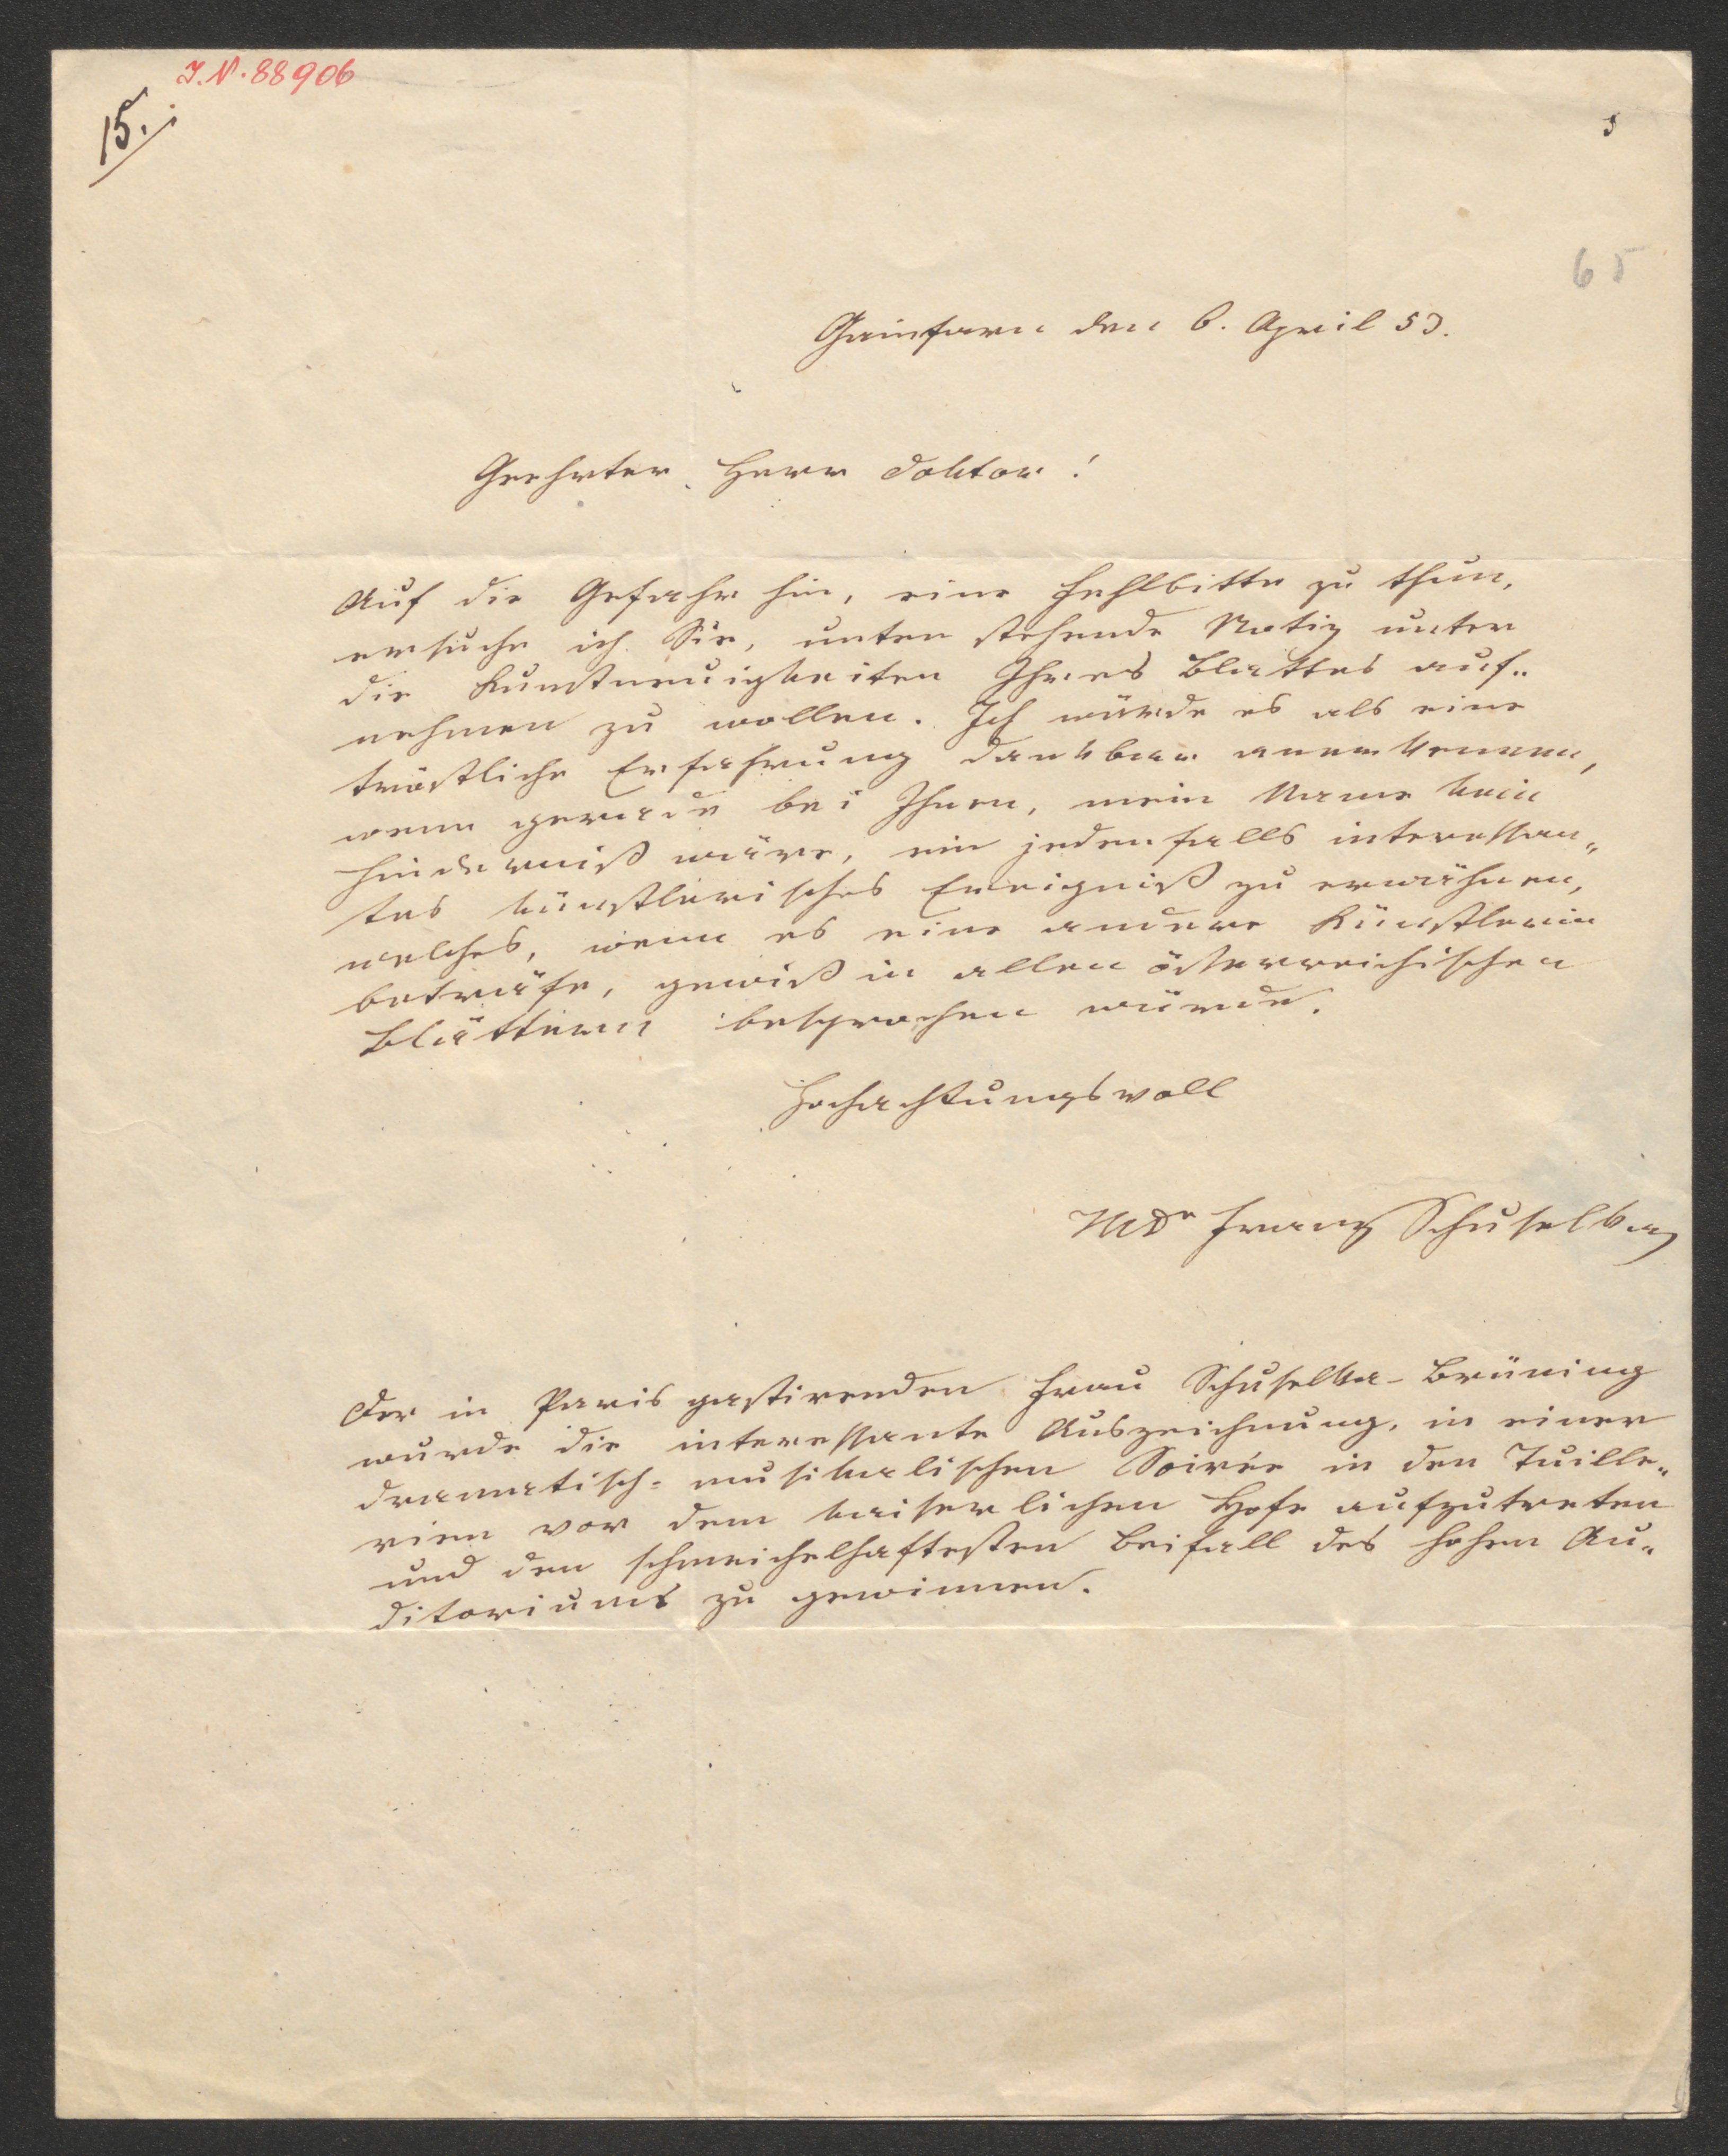 I.N. 88906
15.
65
Gainfarn den 6. April 53.
Geehrter Herr Doktor!
Auf die Gefahr hin, eine Fehlbitte zu thun,
ersuche ich Sie, unten stehende Notiz unter
die Kunstneuigkeiten Ihres Blattes auf-
nehmen zu wollen. Ich würde es als eine
tröstliche Erfahrung dankbar anerkennen,
wenn gerade bei Ihnen, mein Name kein
Hinderniß wäre, ein jedenfalls interessan-
tes künstlerisches Ereigniß zu erwähnen,
welches, wenn es eine andere Künstlerin
beträfe, gewiß in allen österreichischen
Blättern besprochen würde.
Hochachtungsvoll
Franz Schuselka
Der in Paris gastirenden Frau Schuselka-Brüning
wurde die interessante Auszeichnung, in einer
dramatisch-musikalischen Soirée in den Tuille-
rien vor dem kaiserlichen Hofe aufzutreten
und den schmeichelhaftesten Beifall des hohen Au-
ditoriums zu gewinnen.